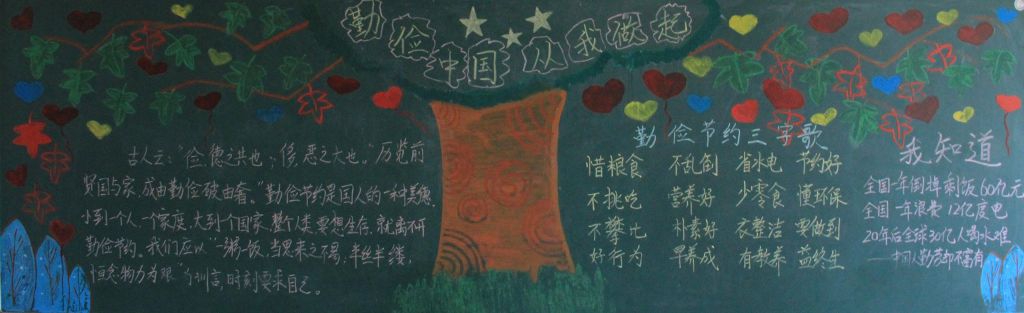 勤俭中国从我做起
古人云：“俭，德之共也；侈，恶之大也。”历览前
贤国与家，成由勤俭破由奢。“勤俭节约是国人的一种美德，
小到一个人、一个家庭，大到一个国家、整个人类要想生存，就离不开
勤俭节约。我们应以“一粥一饭，当思来之不易，半丝半缕，
恒念物力为艰”为训言，时刻要求自己。
勤俭节约三字歌
惜粮食 不乱倒 省水电 节约好
不挑吃 营养好 少零食 懂环保
不攀比 朴素好 衣整洁 要做到
好行为 早养成 有教养 益终生
我知道
全国一年倒掉剩饭60亿元
全国一年浪费12亿度电
20年后全球30亿人喝水难